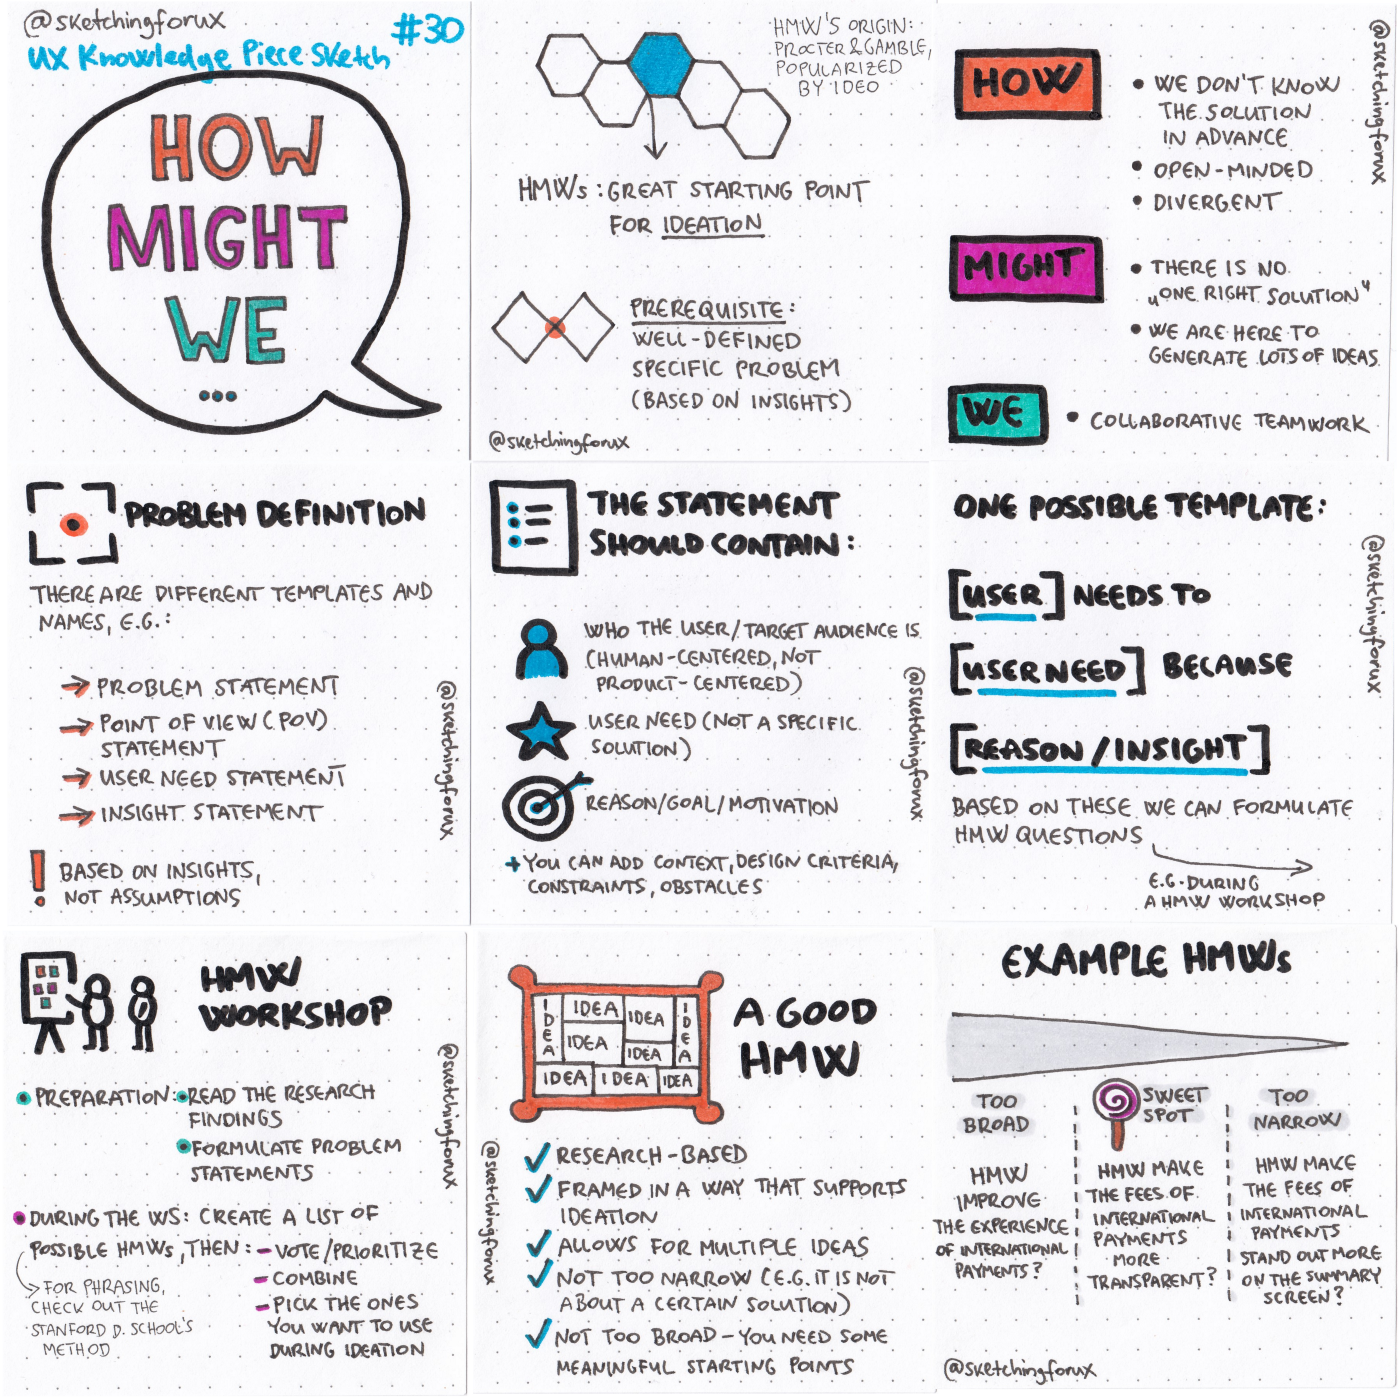 @sketchingforux
#30
UX Knowledge Piece Sketch
HOW
MIGHT
WE
...
HMW'S ORIGIN:
PROCTER & GAMBLE,
POPULARIZED
BY IDEO
HMWs: GREAT STARTING POINT
FOR IDEATION
PREREQUISITE:
WELL-DEFINED
SPECIFIC PROBLEM
(BASED ON INSIGHTS)
@sketchingforux
@sketchingforux
HOW
• WE DON'T KNOW
THE SOLUTION
IN ADVANCE
• OPEN-MINDED
• DIVERGENT
MIGHT
• THERE IS NO
„ONE RIGHT SOLUTION"
• WE ARE HERE TO
GENERATE LOTS OF IDEAS.
WE
• COLLABORATIVE TEAMWORK
PROBLEM DEFINITION
THERE ARE DIFFERENT TEMPLATES AND
NAMES, E.G.:
→ PROBLEM STATEMENT
→ POINT OF VIEW (POV)
STATEMENT
→ USER NEED STATEMENT
→ INSIGHT STATEMENT
! BASED ON INSIGHTS,
NOT ASSUMPTIONS
@sketchingforux
THE STATEMENT
SHOULD CONTAIN:
WHO THE USER/TARGET AUDIENCE IS
(HUMAN-CENTERED, NOT
PRODUCT-CENTERED)
USER NEED (NOT A SPECIFIC
SOLUTION)
REASON/GOAL/MOTIVATION
+ YOU CAN ADD CONTEXT, DESIGN CRITERIA,
CONSTRAINTS, OBSTACLES
@sketchingforux
ONE POSSIBLE TEMPLATE:
[USER] NEEDS TO
[USER NEED] BECAUSE
[REASON/INSIGHT]
BASED ON THESE WE CAN FORMULATE
HMW QUESTIONS
E.G. DURING
A HMW WORKSHOP
@sketchingforux
HMW
WORKSHOP
• PREPARATION: • READ THE RESEARCH
FINDINGS
• FORMULATE PROBLEM
STATEMENTS
• DURING THE WS: CREATE A LIST OF
POSSIBLE HMWs, THEN: - VOTE/PRIORITIZE
- COMBINE
- PICK THE ONES
YOU WANT TO USE
DURING IDEATION
FOR PHRASING,
CHECK OUT THE
STANFORD D. SCHOOL'S
METHOD
@sketchingforux
IDEA
IDEA
IDEA
IDEA
IDEA
IDEA
IDEA
IDEA
IDEA
A GOOD
HMW
✓ RESEARCH-BASED
✓ FRAMED IN A WAY THAT SUPPORTS
IDEATION
✓ ALLOWS FOR MULTIPLE IDEAS
✓ NOT TOO NARROW (E.G. IT IS NOT
ABOUT A CERTAIN SOLUTION)
✓ NOT TOO BROAD - YOU NEED SOME
MEANINGFUL STARTING POINTS
@sketchingforux
EXAMPLE HMWs
TOO
BROAD
HMW
IMPROVE
THE EXPERIENCE
OF INTERNATIONAL
PAYMENTS?
SWEET
SPOT
HMW MAKE
THE FEES OF
INTERNATIONAL
PAYMENTS
MORE
TRANSPARENT?
TOO
NARROW
HMW MAKE
THE FEES OF
INTERNATIONAL
PAYMENTS
STAND OUT MORE
ON THE SUMMARY
SCREEN?
@sketchingforux